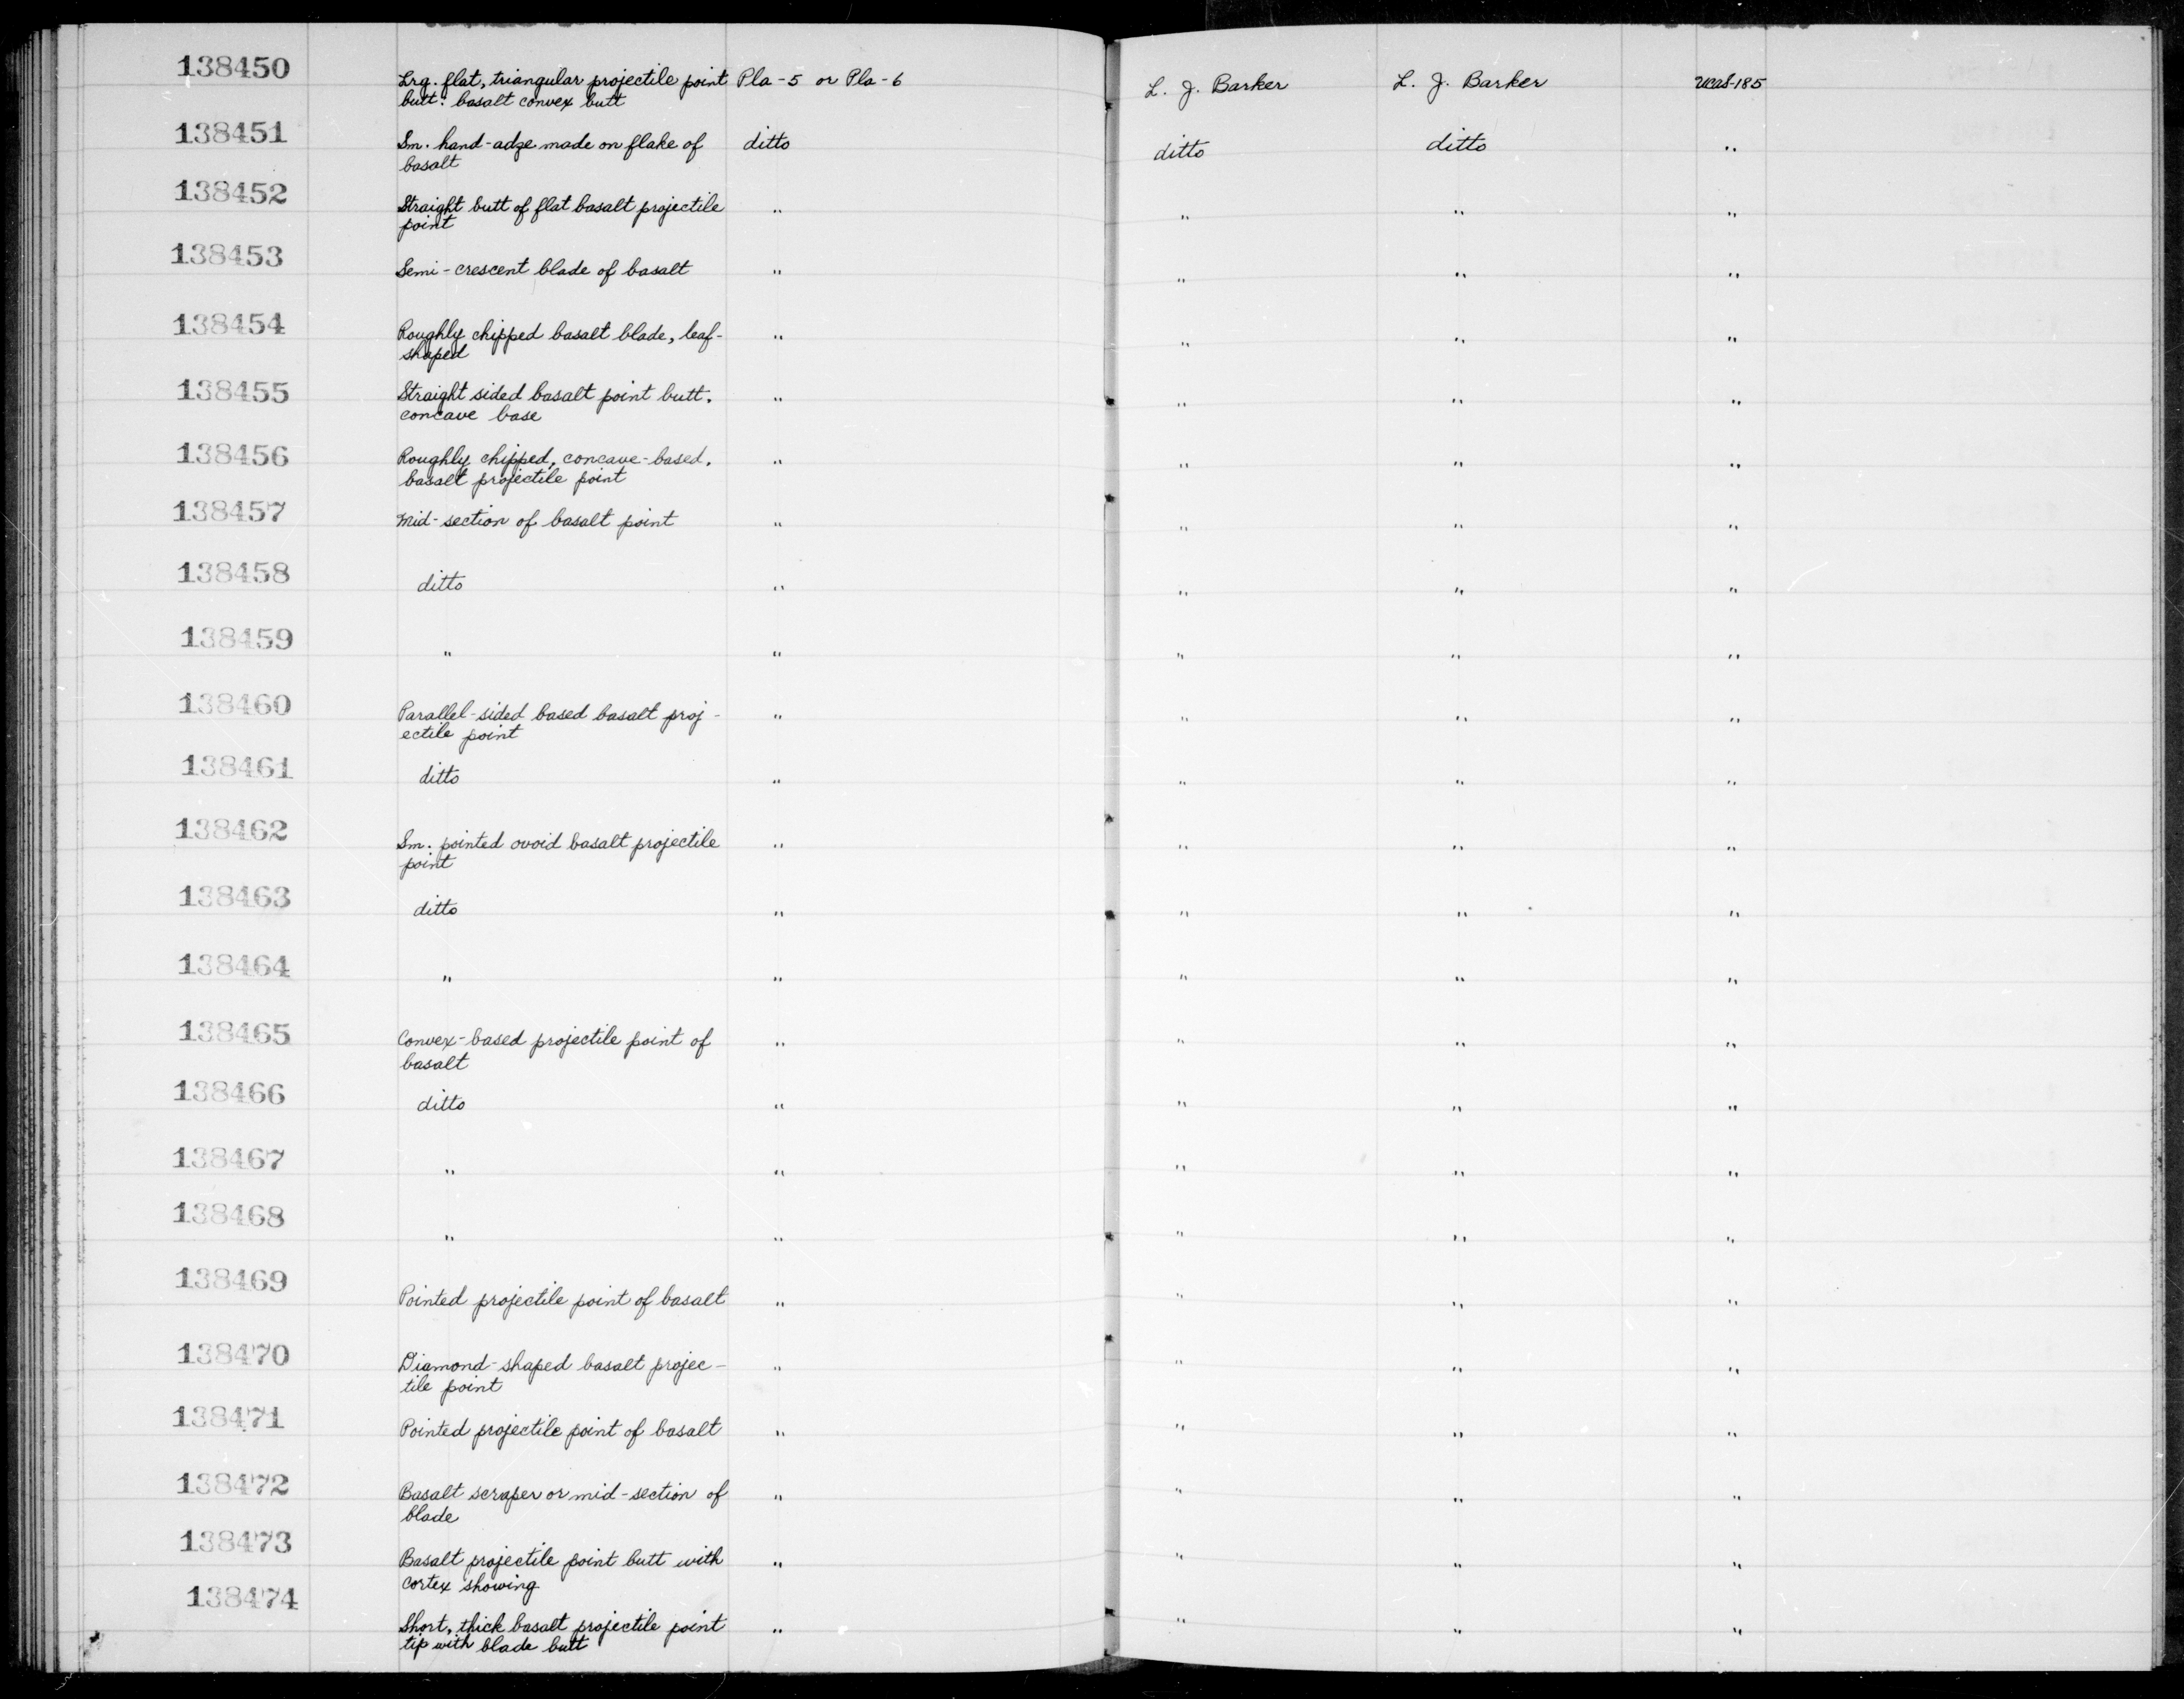 138450 Lrg. flat, triangular projectile point Pla-5 or Pla-6 L. J. Barker L. J. Barker UCAS-185
butt: basalt convex butt
138451 Sm. hand-adze made on flake of ditto ditto ditto "
basalt
138452 Straight butt of flat basalt projectile " " " "
point
138453 Semi-crescent blade of basalt " " " "
138454 Roughly chipped basalt blade, leaf- " " " "
shaped
138455 Straight sided basalt point butt, " " " "
concave base
138456 Roughly chipped, concave-based, " " " "
basalt projectile point
138457 Mid-section of basalt point " " " "
138458 ditto " " " "
138459 " " " " "
138460 Parallel-sided based basalt proj- " " " "
ectile point
138461 ditto " " " "
138462 Sm. pointed ovoid basalt projectile " " " "
point
138463 ditto " " " "
138464 " " " " "
138465 Convex-based projectile point of " " " "
basalt
138466 ditto " " " "
138467 " " " " "
138468 " " " " "
138469 Pointed projectile point of basalt " " " "
138470 Diamond-shaped basalt projec- " " " "
tile point
138471 Pointed projectile point of basalt " " " "
138472 Basalt scraper or mid-section of " " " "
blade
138473 Basalt projectile point butt with " " " "
cortex showing
138474 Short, thick basalt projectile point " " " "
tip with blade butt